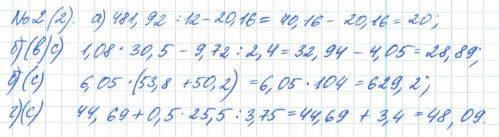 №2(2). а) 481,92 : 12 - 20,16 = 40,16 - 20,16 = 20;
б)(в)с) 1,08 · 30,5 - 9,72 : 2,4 = 32,94 - 4,05 = 28,89;
в)(с) 6,05 · (53,8 + 50,2) = 6,05 · 104 = 629,2;
г)(с) 44,69 + 0,5 · 25,5 : 3,75 = 44,69 + 3,4 = 48,09.